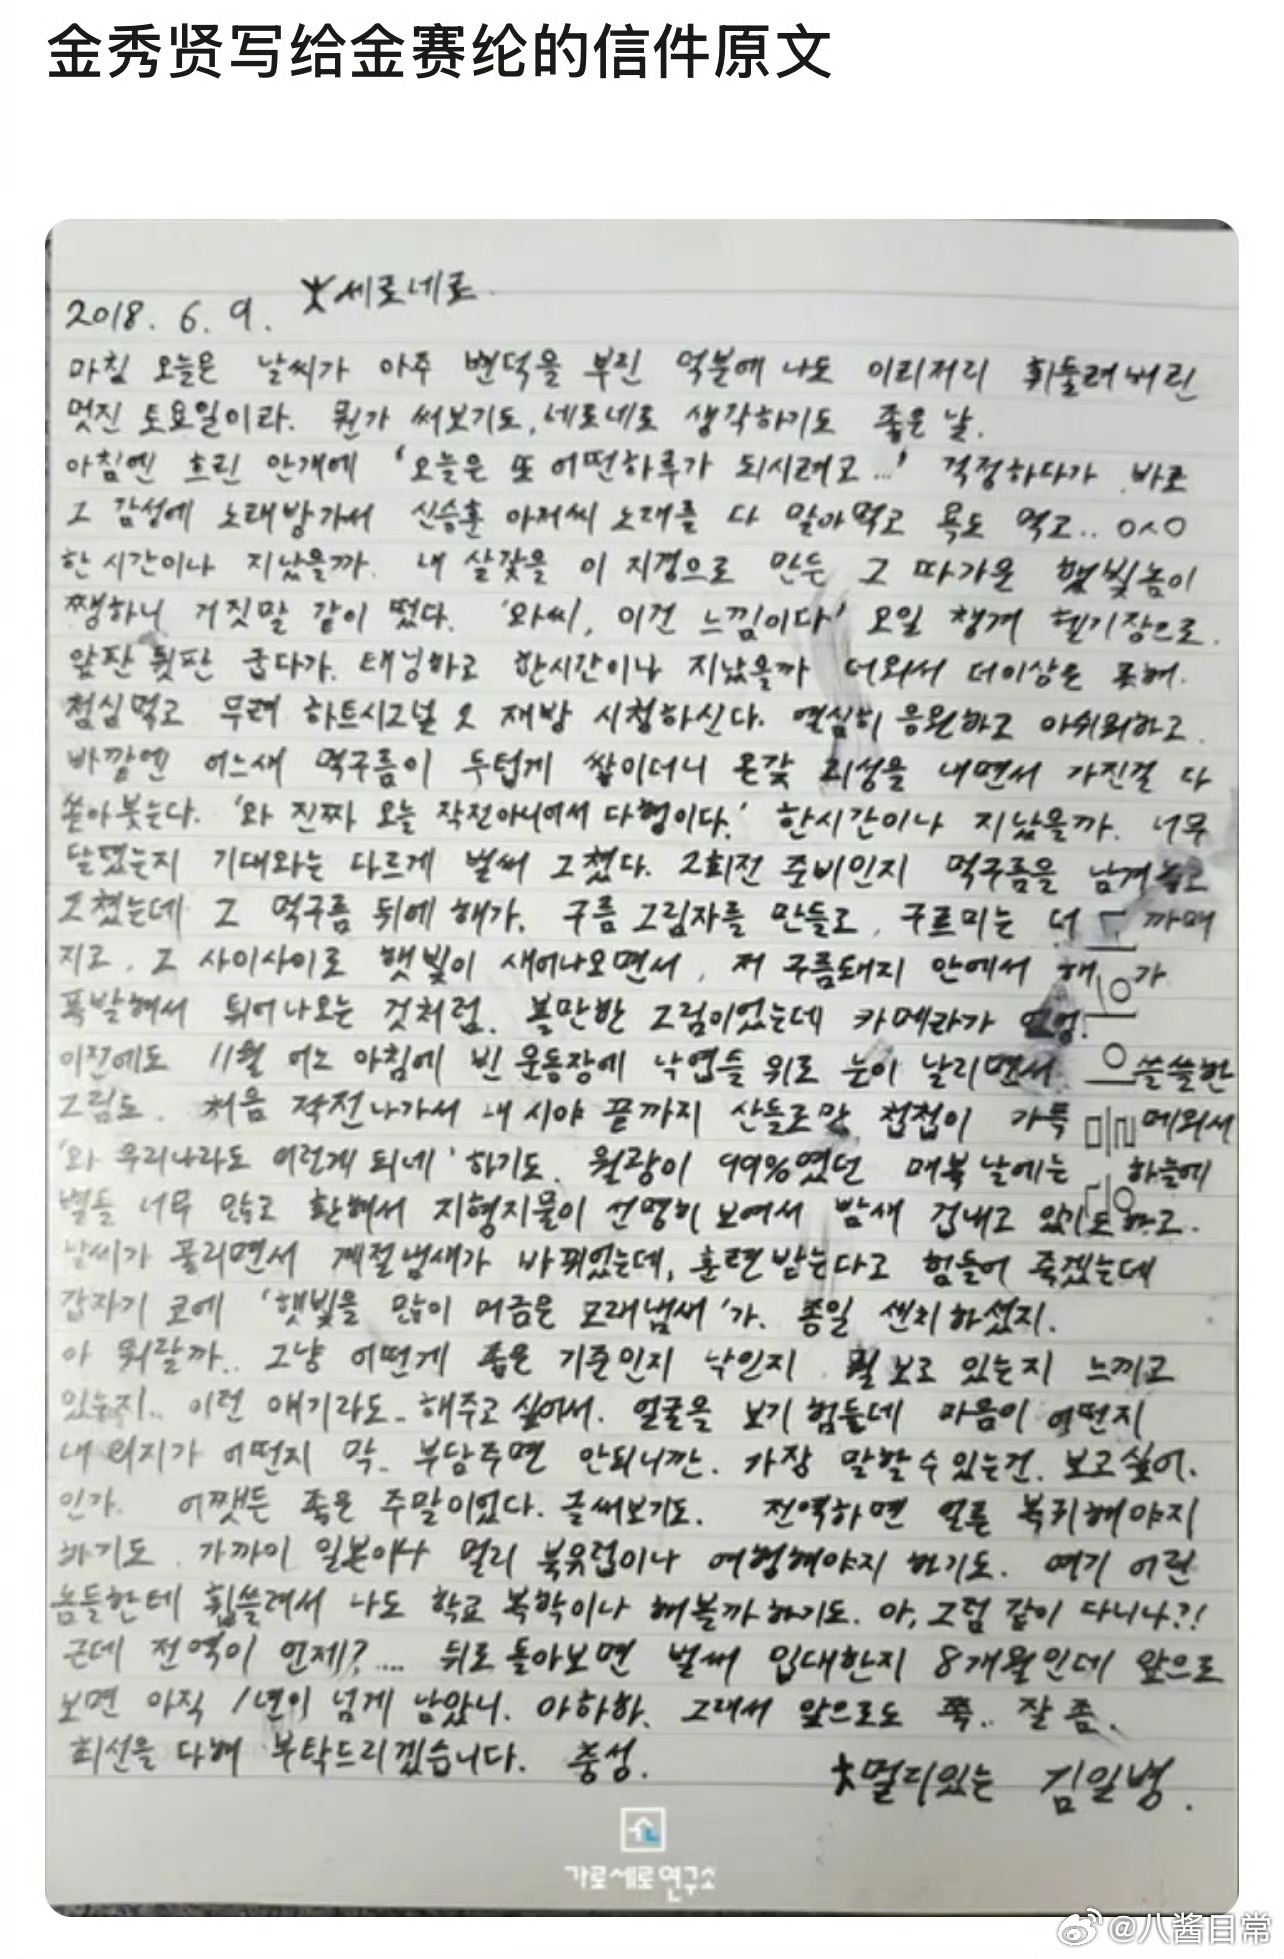 金秀贤写给金赛纶的信件原文
세로네로
2018. 6. 9.
마침 오늘은 날씨가 아주 변덕을 부린 덕분에 나도 이리저리 휘둘려버린
멋진 토요일이라. 뭔가 써보기도, 세로네로 생각하기도 좋은 날.
아침엔 흐린 안개에 '오늘은 또 어떤하루가 되시려고...' 걱정하다가 바로
그 감성에 노래방가서 신승훈 아저씨 노래를 다 말아먹고 욕도 먹고.. ㅇㅅㅇ
한시간이나 지났을까. 내 살갗을 이 지경으로 만든 그 따가운 햇빛놈이
쨍하니 거짓말 같이 떴다. '와씨, 이건 느낌이다' 오일 챙겨 헬기장으로.
앞판 뒷판 굽다가. 태닝하고 한시간이나 지났을까 더워서 더이상은 못해.
점심먹고 무려 하트시그널 2 재방 시청하신다. 열심히 응원하고 아쉬워하고.
바깥엔 어느새 먹구름이 두텁게 쌓이더니 온갖 괴성을 내면서 가진걸 다
쏟아붓는다. '와 진짜 오늘 작전아니어서 다행이다.' 한시간이나 지났을까. 너무
달렸는지 기대와는 다르게 벌써 그쳤다. 2회전 준비인지 먹구름을 남겨놓고
그쳤는데 그 먹구름 뒤에 해가. 구름그림자를 만들고, 구르미는 더 까매
지고, 그 사이사이로 햇빛이 새어나오면서, 저 구름돼지 안에서 해가
폭발해서 튀어나오는 것처럼. 볼만한 그림이었는데 카메라가 없엉.
이전에도 11월 어느 아침에 빈 운동장에 낙엽들 위로 눈이 날리면서 쓸쓸한
그림도. 처음 작전나가서 내 시야 끝까지 산들로만 첩첩이 가득 메워서
'와 우리나라도 이런게 되네' 하기도. 월광이 99%였던 매복날에는 하늘에
별들 너무 많고 환해서 지형지물이 선명히 보여서 밤새 겁내고 있기도하고.
날씨가 풀리면서 계절냄새가 바뀌었는데, 훈련받는다고 힘들어 죽겠는데
갑자기 코에 '햇빛을 많이 머금은 모래냄새'가. 종일 센치하셨지.
아 뭐랄까.. 그냥 어떤게 좋은 기준인지 낙인지 뭘 보고 있는지 느끼고
있는지.. 이런 얘기라도.. 해주고 싶어서. 얼굴을 보기 힘든데 마음이 어떤지
내 의지가 어떤지 막.. 부담주면 안되니깐. 가장 말할수있는건. 보고싶어.
인가. 어쨋든 좋은 주말이었다. 글써보기도. 전역하면 얼른 복귀해야지
하기도. 가까이 일본이나 멀리 북유럽이나 여행해야지 하기도. 여기 어린
놈들한테 휩쓸려서 나도 학교 복학이나 해볼까하기도. 아, 그럼 같이 다니나?!
근데 전역이 언제?.... 뒤로 돌아보면 벌써 입대한지 8개월인데 앞으로
보면 아직 1년이 넘게 남았니. 아하하. 그래서 앞으로도 쭉.. 잘 좀.
최선을 다해 부탁드리겠습니다. 충성.
멀리있는 김일병.
가로세로연구소
@八酱日常